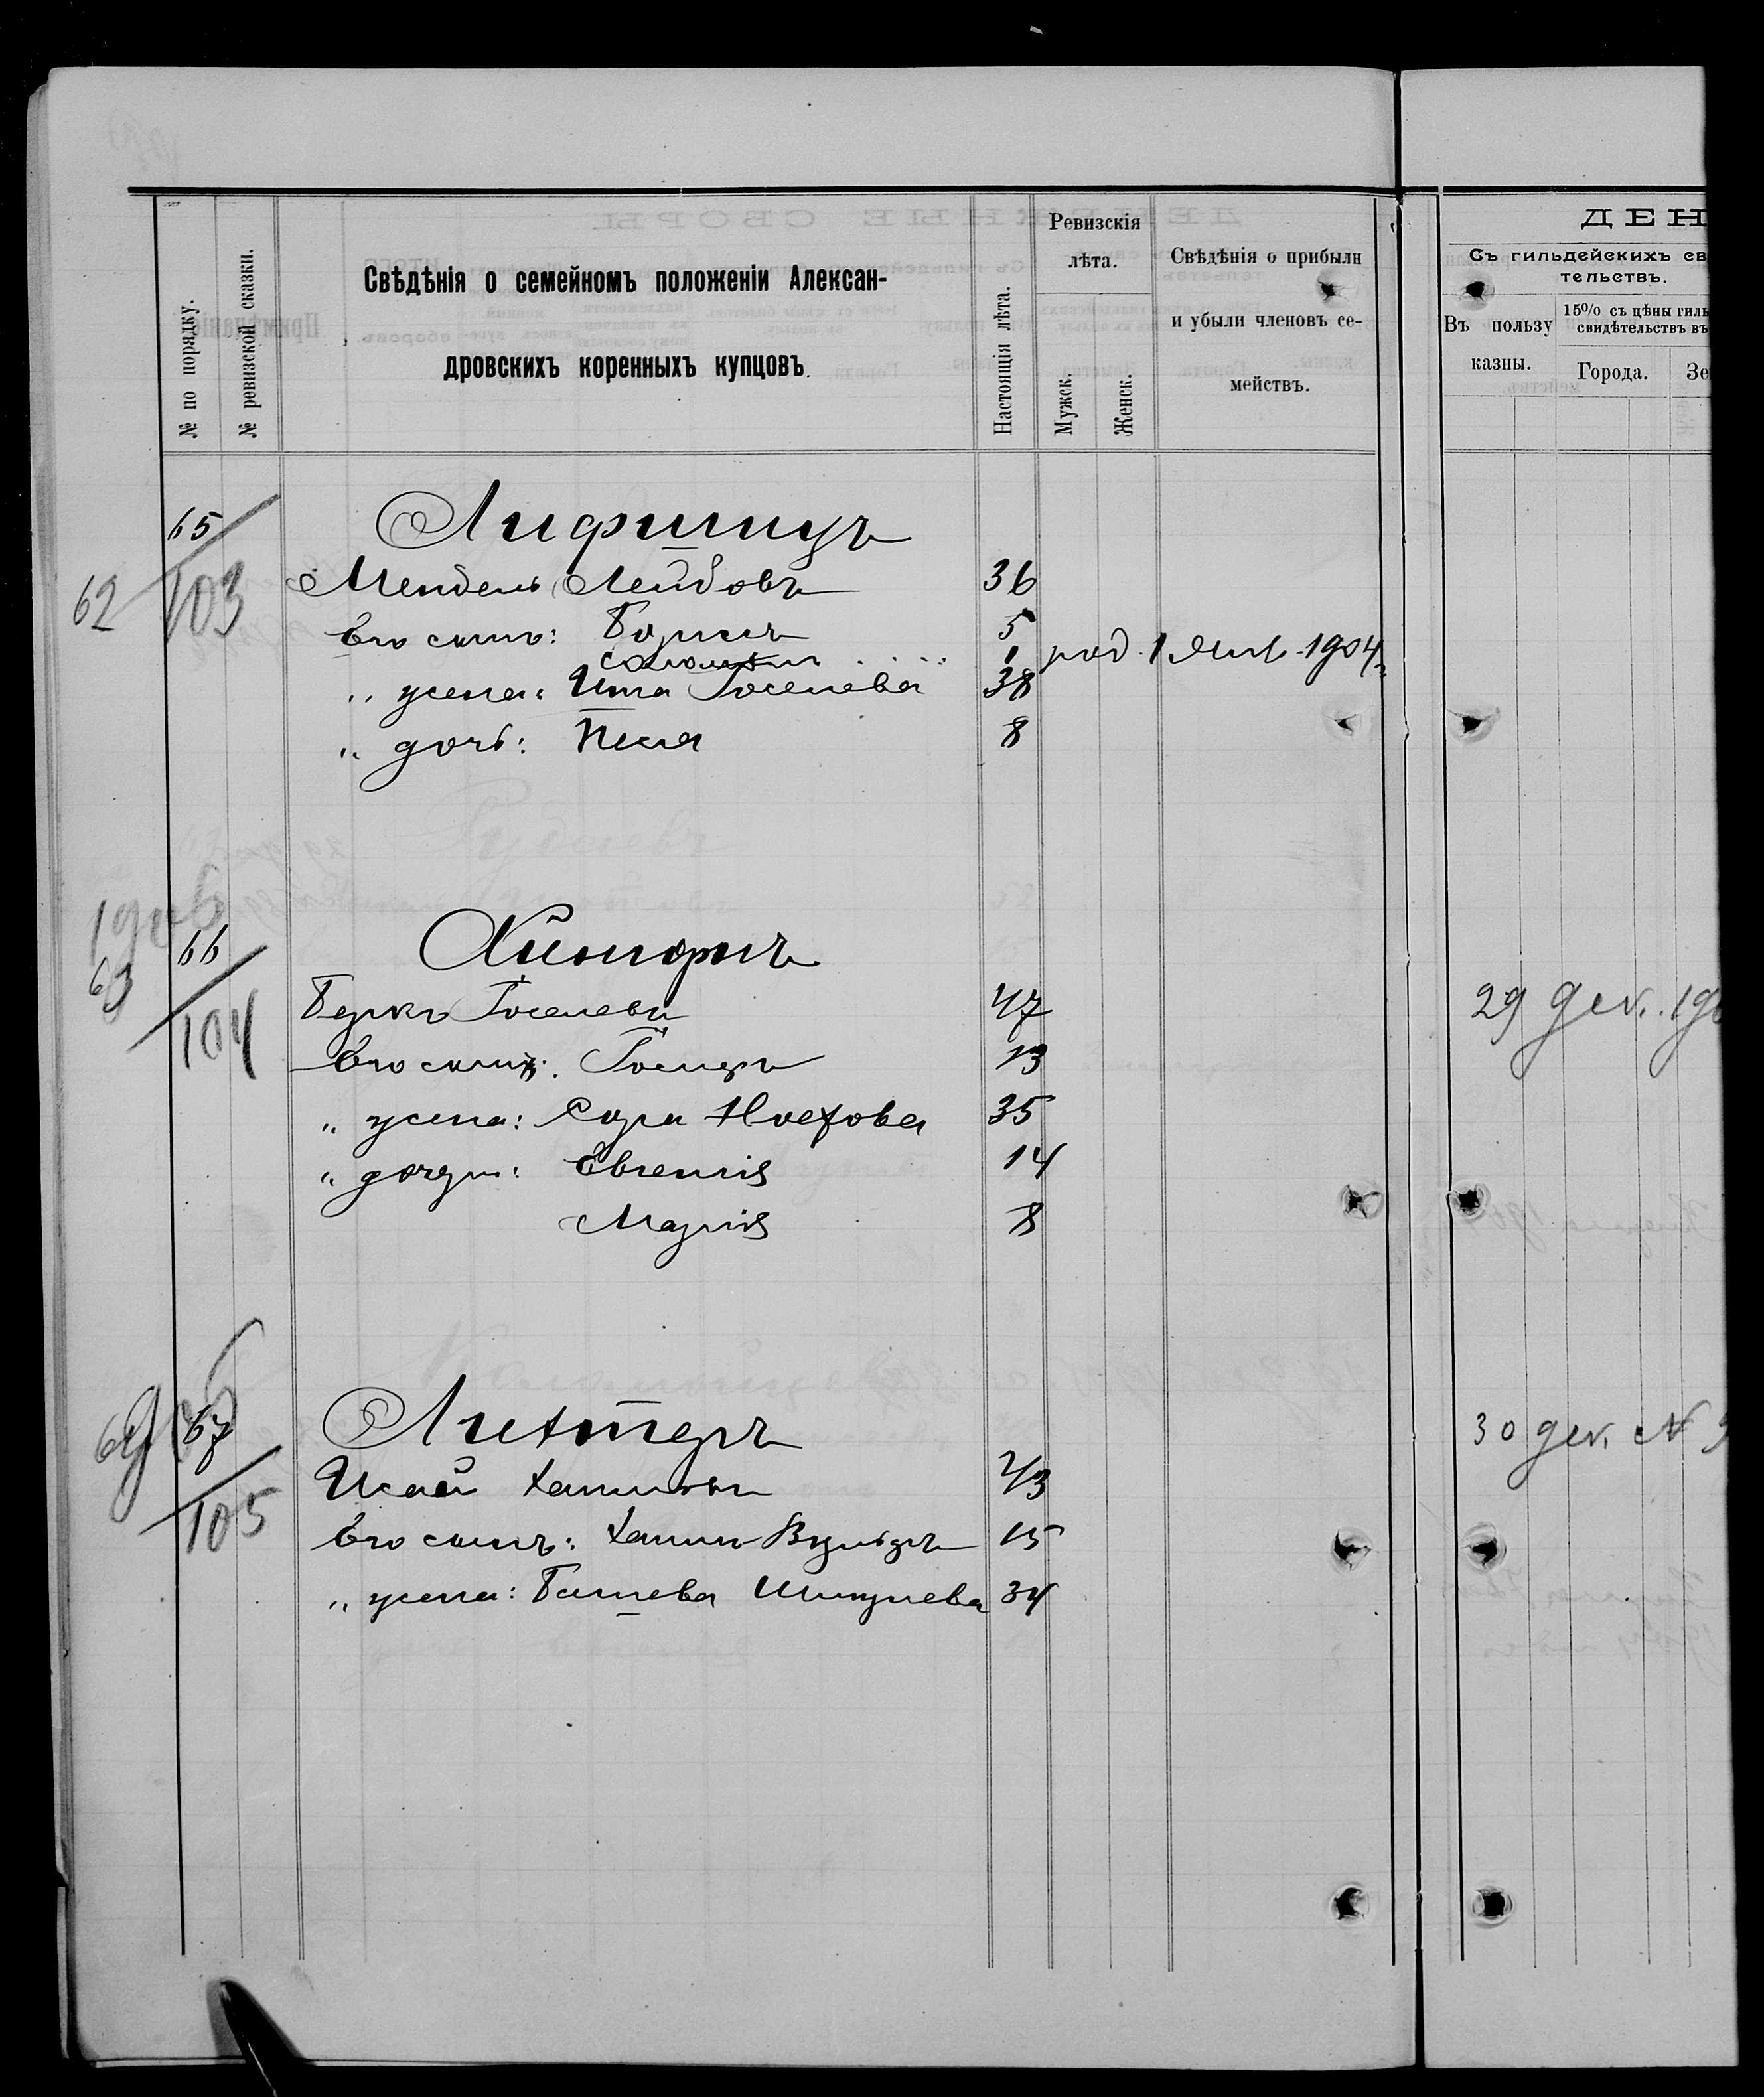 № по порядку.
№ ревизской сказки.
Свѣдѣнія о семейномъ положеніи Алексан-
дровскихъ коренныхъ купцовъ.
Настоящія лѣта.
Ревизскія
лѣта.
Мужск.
Женск.
Свѣдѣнія о прибыли
и убыли членовъ се-
мействъ.
ДЕН
Съ гильдейскихъ св
тельствъ.
Въ пользу
казны.
15% съ цѣны гиль
свидѣтельствъ въ
Города.
Зе
65 Лифшицъ
62 103 Мендель Лейбовъ 36
Его сынъ: Борисъ 5
Соломонъ 1 род. 1 Янв. 1904 г.
„ жена: Ита Іоселева 38
„ дочь: Песя 8
1906
66
63 104
Беркъ Іоселевъ 47 29 дек. 190
Его сынъ: Іосифъ 13
„ жена: Сора Ноехова 35
„ дочери: Евгенія 14
Марія 8
67 Лихтеръ 30 дек. №
64 105 Исай Хаимовъ 43
Его сынъ: Хаимъ Вульфъ 15
„ жена: Башева Шмулева 34